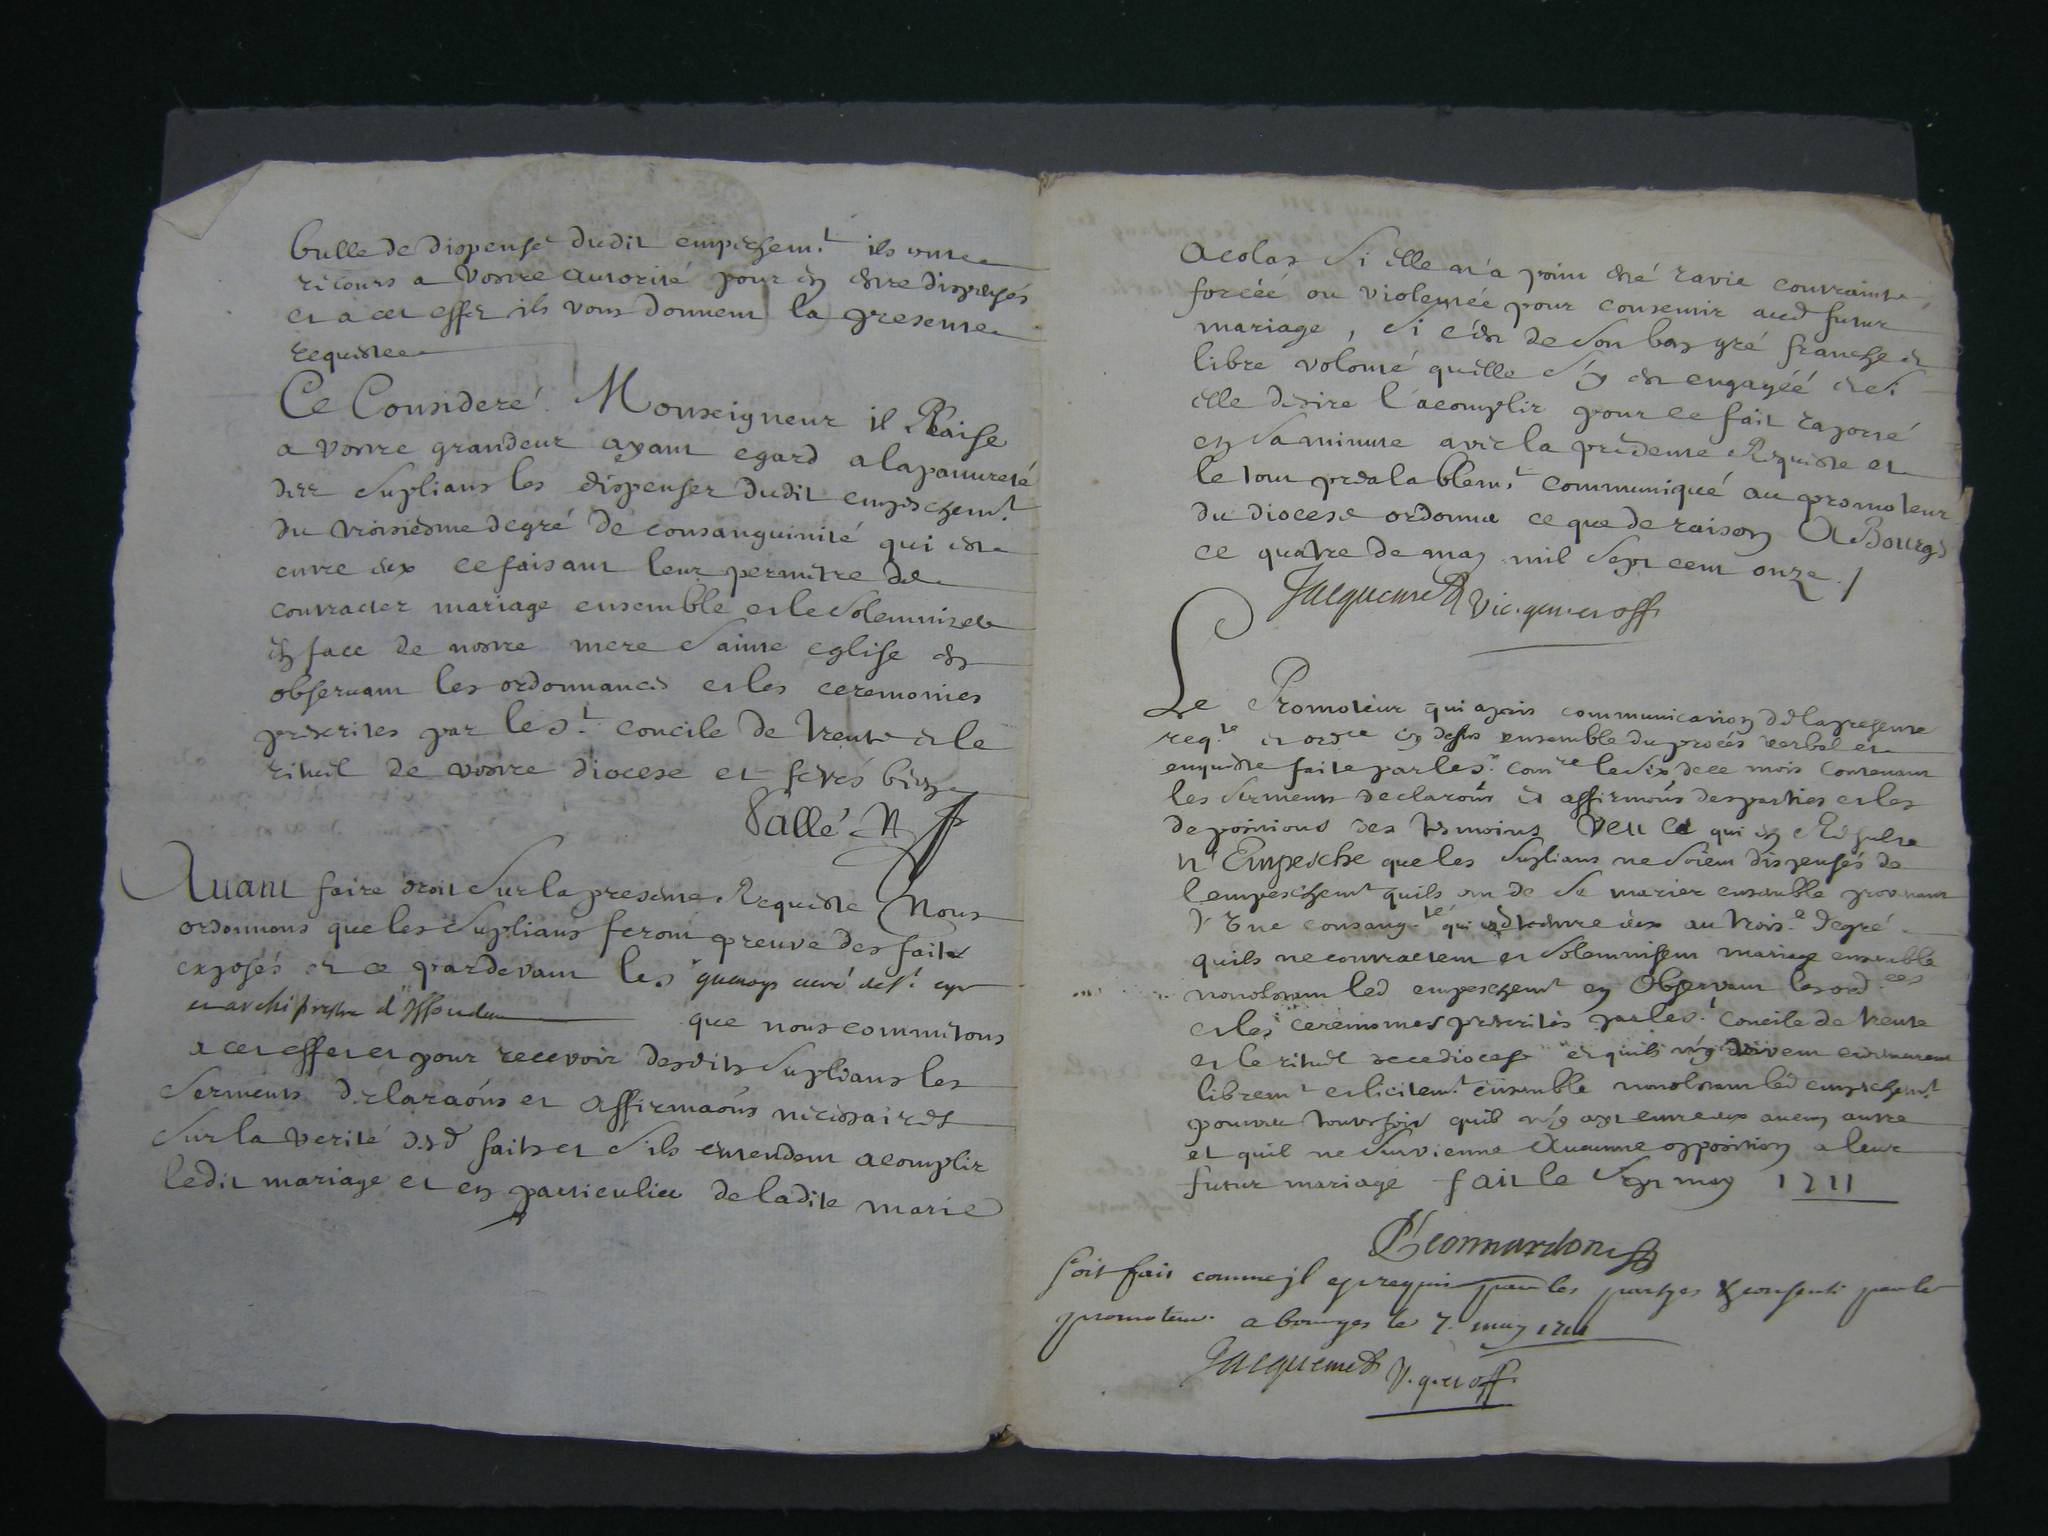 bulle de dispense dudit empeschemt. ils ont
recours a vostre autorité pour en estre dispensés
et a cet effet ils vous donnent la presente
requeste
Ce Consideré Monseigneur il Plaise
a vostre grandeur ayant egard a la pauvreté
des suplians les dispenser dudit empeschemt.
du troisiesme degré de consanguinité qui est
entre eux ce faisant leur permetre de
contracter mariage ensemble et le solemniser
en face de nostre mere sainte eglise en
observant les ordonnances et les ceremonies
prescrites par le st. concile de trente et le
rituel de vostre diocese et ferés bien
Vallé N
Avant faire droit sur la presente Requeste Nous
ordonnons que les suplians feront preuve des faits
exposés et ce pardevant le sr curé de st. cyr
et archiprestre d'Issoudun que nous commetons
a cet effet et pour recevoir desdits suplians les
serments declaraons et affirmaons necessaires
sur la verité desd faits et s'ils entendent acomplir
ledit mariage et en particulier de ladite marie
acolas si elle n'a point esté ravie contrainte,
forcéé ou violentéé pour consentir aud futur
mariage, si c'est de son bon gré franche et
libre volonté quelle s'y est engagéé et si
elle desire l'acomplir pour ce fait raporté
en sa minute avec la presente Requeste et
le tout prealablemt. communiqué au promoteur
du diocese ordonné ce que de raison A Bourges
ce quatre de may mil sept cent onze /
Jacquemet vic. gen. et off.
Le Promoteur qui a pris communication de la presente
reqte. et ordce en dessus ensemble du procés verbal et
enqueste faite par le sr. comre le six de ce mois contenant
les serments declaraons et affirmaons des parties et les
depositions des tesmoins Veu ce qui en Resulte
N'Empesche que les suplians ne soient dispensés de
l'empeschemt quils ont de se marier ensemble provenant
d'Une consangté. qui est entre eux au trois.e degré
quils ne contractent et solemnisent mariage ensemble
nonobstant led empeschemt en Observant les ordces
et les ceremonies prescrites par le st. Concile de trente
et le rituel de ce diocese et quils n'y vivent et demeurent
libremt et licitemt. ensemble nonobstant led empeschemt.
pourveu toutefois quil n'y ayt entre eux aucun autre
et quil ne survienne Aucunne opposition a leur
futur mariage fait le sept may 1711
Leonnardon
soit fait comme jl est requis par les partyes & consenti par le
promoteur a bourges le 7. may 1711
Jacquemet V. g. et off.